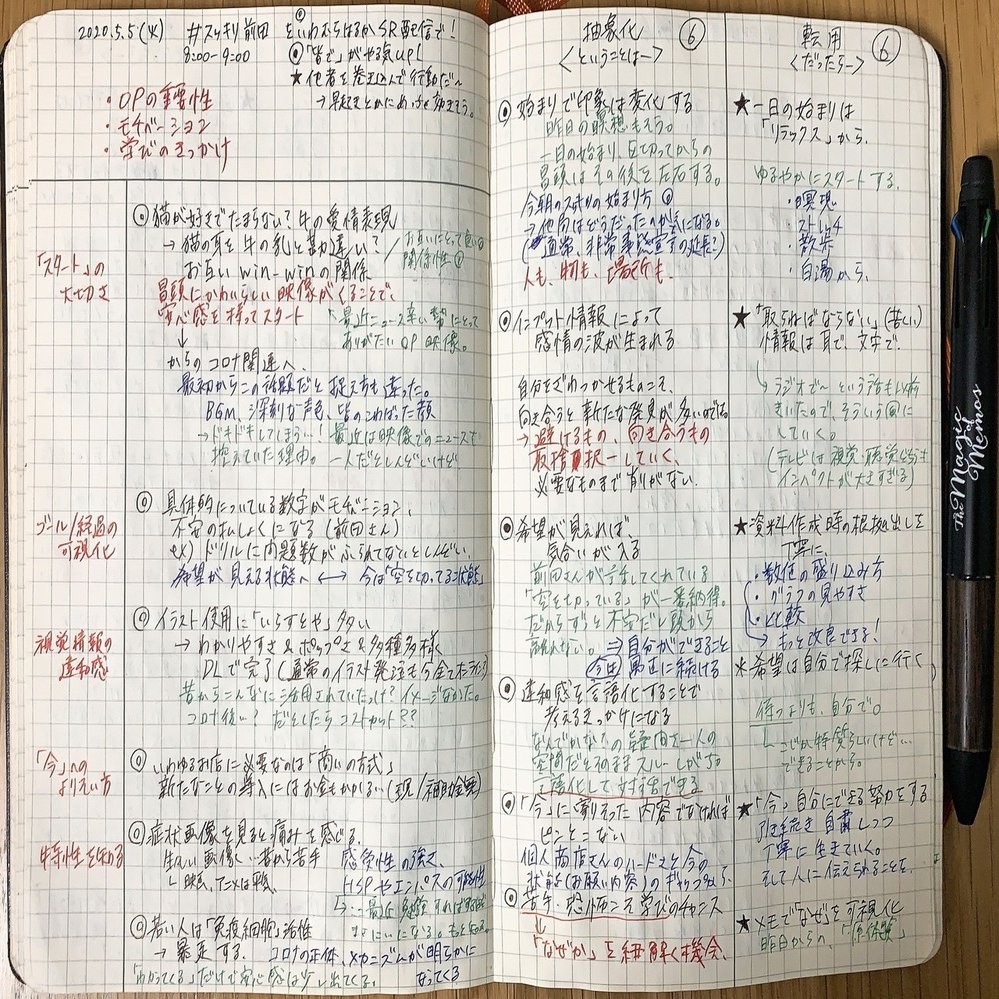 2020.5.5(火)
#スッキリ前田
8:00-9:00
・OPの重要性
・モチベーション
・学びのきっかけ
SR配信で!
「皆で」がやる気UP!
★他者を巻き込んで行動だ〜
「スタート」の
大切さ
◎猫が好きでたまらない?牛の愛情表現
→猫の耳を牛の乳と勘違い?
お互いwin-winの関係
お互いにとって良い
関係性
冒頭にかわいらしい映像がくることで、
安心感を持ってスタート
ありがたいOP映像。
↓
からのコロナ関連へ、
最初からこの話題だと捉え方も違った。
BGM、深刻な声色、皆のこわばった顔
→ドキドキしてしまう…!最近は映像でのニュースを
控えていた理由。一人だとしんどいけど
ゴール/経過の
可視化
◎具体的についている数字がモチベーション、
(前田さん)
ex)ドリルに問題数がふられてないとしんどい。
希望が見える状態へ ←→ 今は「空を切ってる状態」
視覚情報の
違和感
◎イラスト使用に「いらすとや」多い
→わかりやすさ&ポップさ&多種多様
DLで完了
昔からこんなに活用されていたっけ?イメージなかった。
コロナ後〜? だとしたらコストカット??
「今」への
よりそい方
◎いわゆるお店に必要なのは「商いの方式」
新たなことの導入にはお金もかかるい(現/補助金無)
特性を知る
◎症状画像を見ると痛みを感じる。
生々しい画像し…昔から苦手
└映画、アニメは平気。
感受性の強さ、
HSPやエンパスの可能性
◎若い人は「免疫細胞」活性
→暴走する。コロナの正体、メカニズムが明らかに
なってくる
「わかってくる」だけで安心感は少し出てくる。
抽象化 ⑥
<ということは〜>
◎始まりで印象は変化する
昨日の瞑想もそう。
一日の始まり、区切ってからの
冒頭はその後を左右する。
今朝のスッキリの始まり方
→他局はどうだったのか気になる。
人も、物も、場所も。
◎インプット情報によって
感情の波が生まれる
自分をざわつかせるものこそ、
向き合うと新たな発見が多いのでは
→避けるもの、向き合うもの
取捨選択していく、
必要なものまで削がない。
◎希望が見えれば、
気合いが入る
前田さんが言語化してくれている
「空を切っている」が一番納得。
だからずっと不安だし頭から
離れない。
⇒自分ができること
◎違和感を言語化することで
考えるきっかけになる
なんでかな?の疑問を一人の
空間だとそのままスルーしがち。
言語化して対話できる
◎「今」に寄りそった内容でなければ
ピンとこない
個人商店さんのハードさと今の
状態(お願い内容)のギャップから。
◎苦手、恐怖こそ学びのチャンス
↓
「なぜか」を紐解く機会。
転用 ⑥
<だったら〜>
★一日の始まりは
「リラックス」から、
ゆるやかにスタートする、
・瞑想
・ストレッチ
・散歩
・白湯から、
★「取らねばならない」(苦しい)
情報は耳で、文字で、
きいたので、そういう風に
していく。
インパクトが大きすぎる)
★資料作成時の根拠出しを
丁寧に、
・数値の盛り込み方
・グラフの見やすさ
・比較
→もっと改良できる!
★希望は自分で探しに行く
待つよりも、自分で。
できることから。
★「今」自分にできる努力をする
引き続き自粛しつつ
丁寧に生きていく。
そして人に伝えられることを、
★メモで「なぜ」を可視化
昨日からの、
The Magic
of Memos